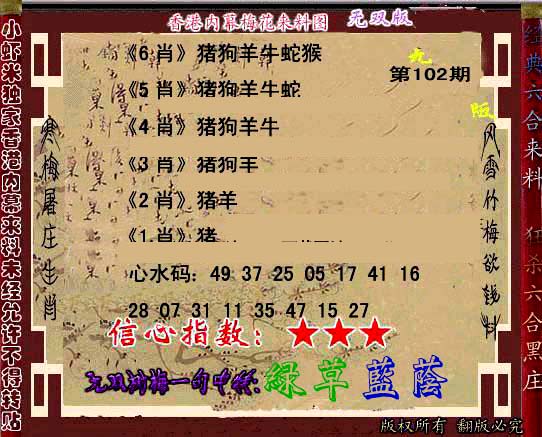 香港内幕梅花来料图 无双版
《6 肖》猪狗羊牛蛇猴
九
第102期
《5 肖》猪狗羊牛蛇
版
《4 肖》猪狗羊牛
《3 肖》猪狗羊
《2 肖》猪羊
《1 肖》猪
心水码：49 37 25 05 17 41 16
28 07 31 11 35 47 15 27
信心指数：★★★
无双剑梅一句中特:绿草蓝荫
版权所有 翻版必究
小虾米独家香港内幕来料未经允许不得转贴
寒梅屠庄生肖
风雪竹梅欲钱料
经典六合来料 狂杀六合黑庄